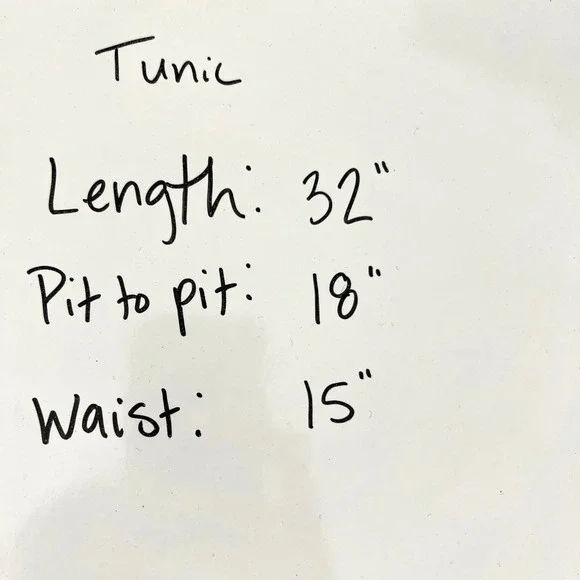 Tunic
Length: 32"
Pit to pit: 18"
Waist: 15"